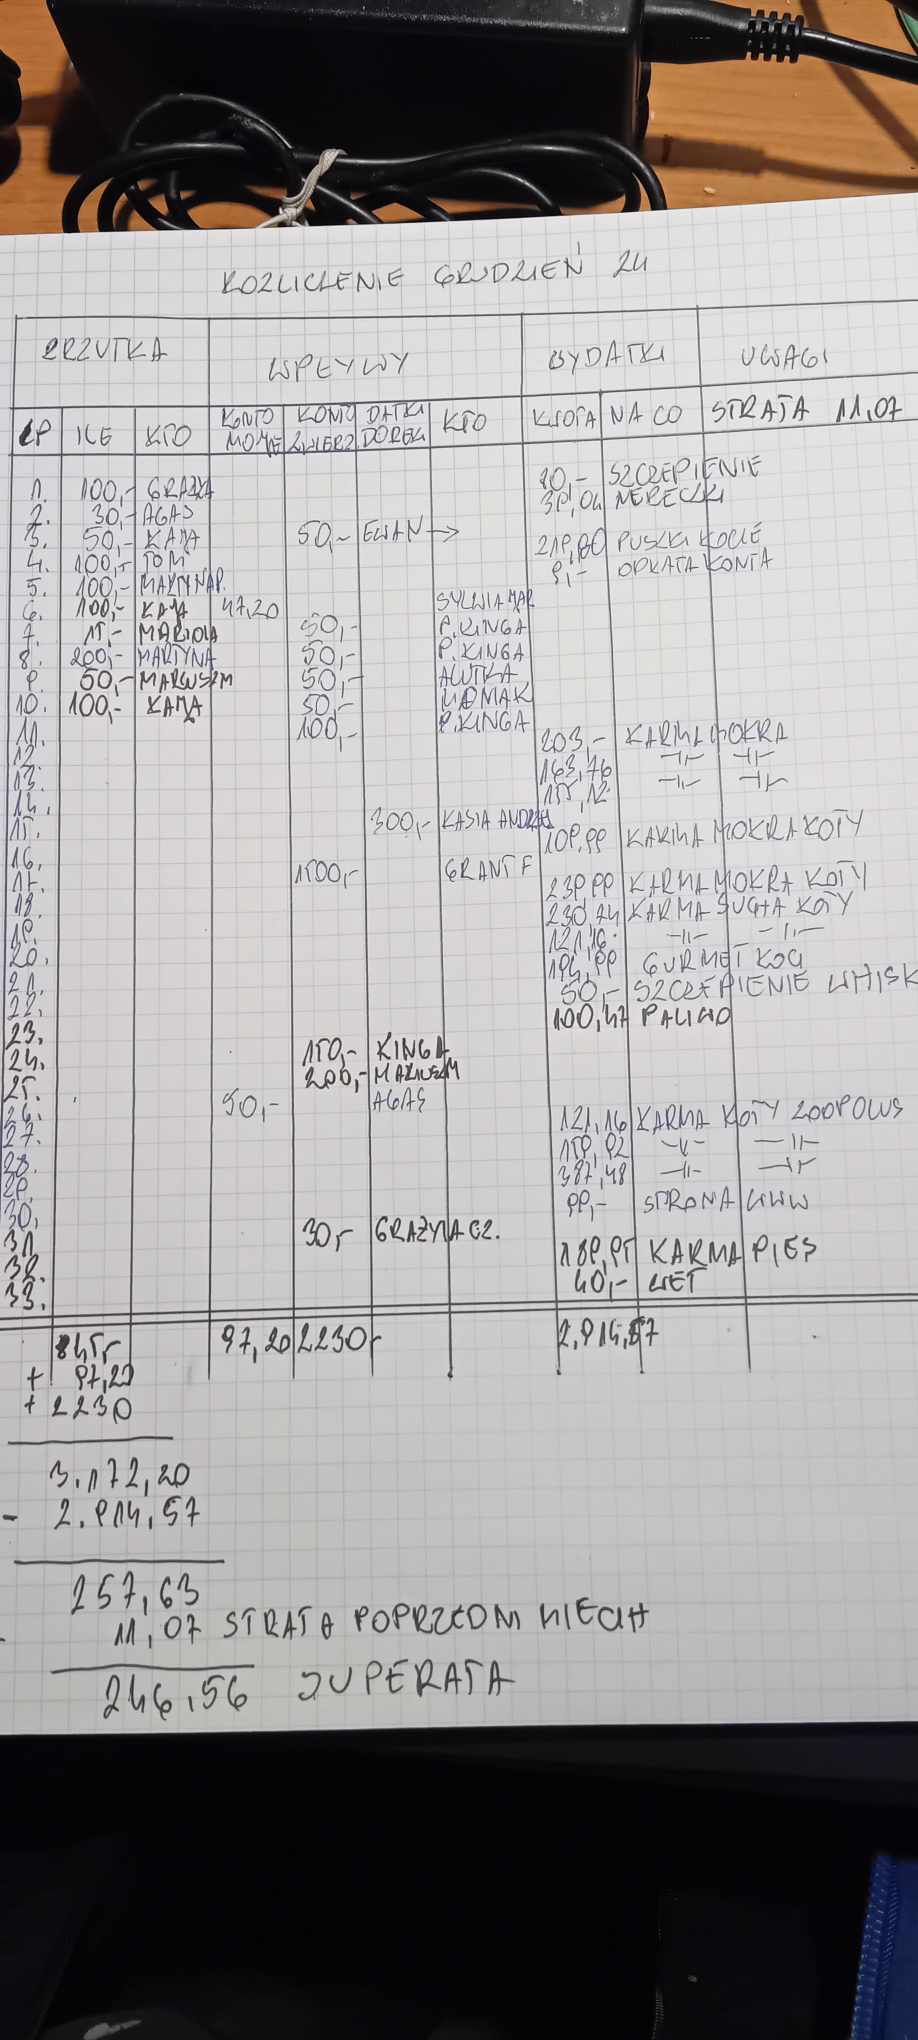 ROZLICZENIE GRUDZIEŃ 24
ZRZUTKA WPŁYWY WYDATKI UWAGI
LP ILE KTO KONTO MOJE KONTO ZWIERZ DATKI DOREK KTO KWOTA NA CO STRATA 11,07
SZCZEPIENIE
1. 100,- GRAŻYA 39,04 NERECZKI
2. 30,- AGAS
3. 50,- KAJA 50,- EWAN → 219,80 PUSZKI KOCIE
4. 100,- TOMI 9,- OPŁATA KONTA
5. 100,- MARTYNAP.
6. 100,- KAJA 47,20 SYLWIA MAR
7. 15,- MARIOLA 50,- P.KINGA
8. 200,- MARTYNA 50,- P.KINGA
9. 50,- MARIUSZM 50,- ALUTKA
10. 100,- KAJA 50,- MAK
11. 100,- P.KINGA 203,- KARMA MOKRA
12. 163,76 -||- -||-
13. 155,12 -||- -||-
14.
15. 300,- KASIA ANDRZEJ 109,99 KARMA MOKRA KOTY
16.
17. 1500,- GRANT F 239,99 KARMA MOKRA KOTY
18. 230,74 KARMA SUCHA KOTY
19. 121,16 -||- -||-
20. 194,99 GURMET KOCI
21. 50,- SZCZEPIENIE WHISK
22. 100,47 PALIWO
23.
24. 150,- KINGA
25. 200,- MARIUSZM
26. 50,- AGAS 121,16 KARMA KOTY ZOOPOLUS
27. 159,92 -||- -||-
28. 387,48 -||- -||-
29.
30. 99,- STRONA WWW
31. 30,- GRAŻYNA CZ.
32. 189,95 KARMA PIES
33. 40,- WET
845,- 97,20 2230,- 2.914,57
+ 97,20
+ 2230
3.172,20
- 2.914,57
257,63
- 11,07 STRATA POPRZEDNI MIECH
246,56 SUPERATA